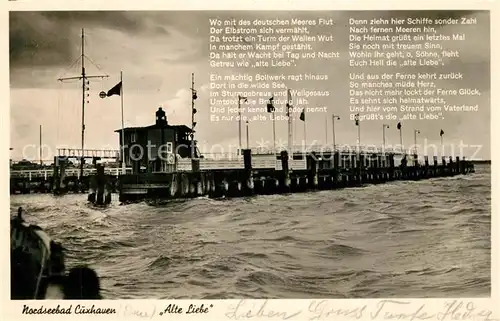 Wo mit des deutschen Meeres Flut
Der Elbstrom sich vermählt,
Da trotzt ein Turm der Wellen Wut
In manchem Kampf gestählt.
Da hält er Wacht bei Tag und Nacht
Getreu wie „alte Liebe".
Ein mächtig Bollwerk ragt hinaus
Dort in die wilde See,
Im Sturmgebraus und Wellgesaus
Umtost von Brandungs
Und jeder kennt und jeder nennt
Es nur die „alte Liebe".
Denn ziehn hier Schiffe sonder Zahl
Nach fernen Meeren hin,
Die Heimat grüßt ein letztes Mal
Sie noch mit treuem Sinn,
Wohin ihr geht, o, Söhne, fleht
Euch Heil die „alte Liebe".
Und aus der Ferne kehrt zurück
So manches müde Herz,
Das nicht mehr lockt der Fernen Glück,
Es sehnt sich heimatwärts,
Und hier vom Strand vom Vaterland
Begrüßt's die „alte Liebe".
Nordseebad Cuxhaven „Alte Liebe" Lieben Gruss Tante